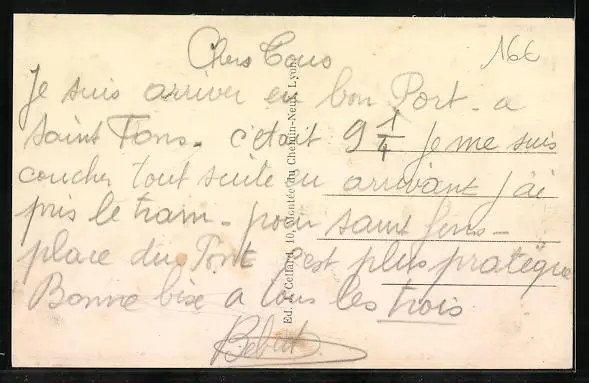 166
Chers Tous
Je suis arriver en bon Port - a
Saint Fons - c'était 9 1/4 je me suis
coucher tout suite en arrivant j'ai
pris le tram - pour saint fons -
place du Pont c'est plus pratique
Bonne bise a tous les trois
Bebert
Ed. J. Cellard, 10, Montée du Chemin-Neuf, Lyon